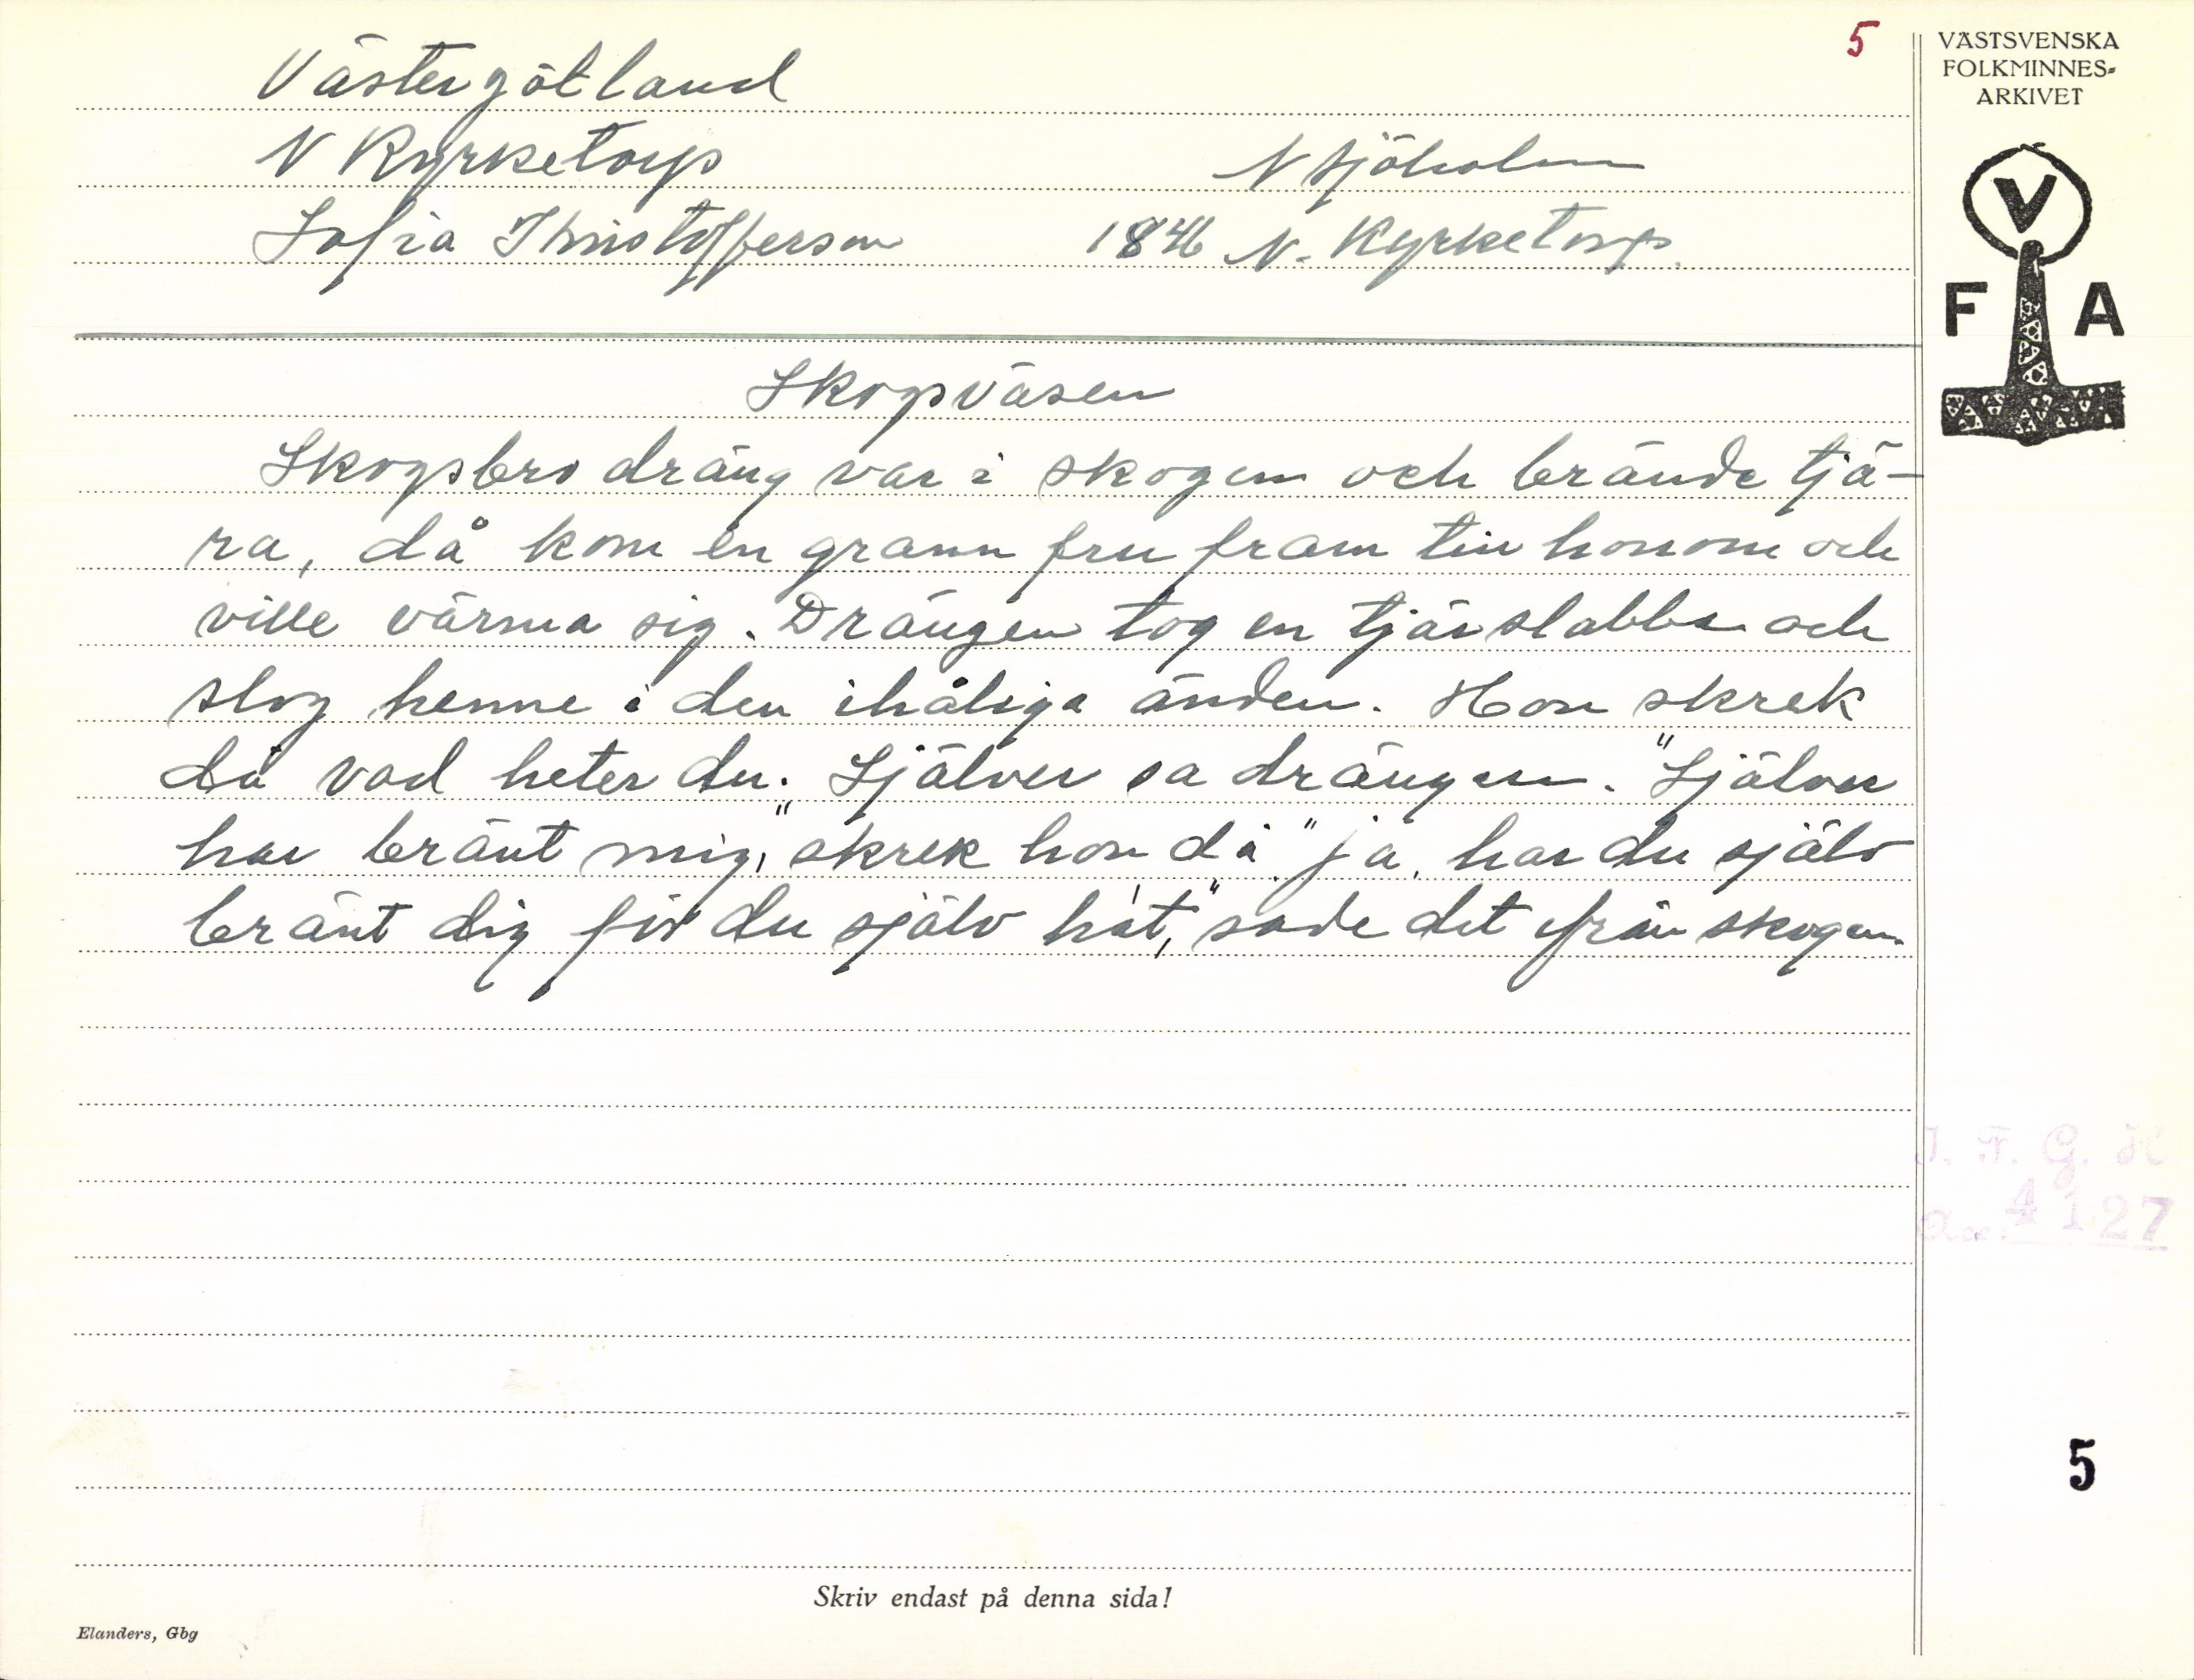 5
VÄSTSVENSKA
FOLKMINNES-
ARKIVET
V
F A
Västergötland
N Kyrketorp N Sjöholm
Sofia Kristofferson 1846 N. Kyrketorp.
Skogsväsen
Skogsbro dräng var i skogen och brände tjä-
ra, då kom en grann fru fram till honom och
ville värma sig. Drängen tog en tjärslabba och
slog henne i den ihåliga änden. Hon skrek
då vad heter du. Själver sa drängen. "Själver
har bränt mig," skrek hon då "ja, har du själv
bränt dig får du själv ha't," sade det ifrån skogen.
I. F. G. H
Acc. 4127
5
Skriv endast på denna sida!
Elanders, Gbg